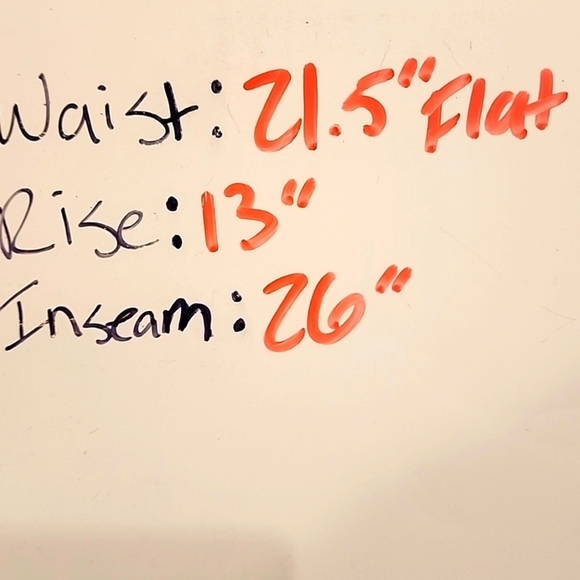 Waist: 21.5" Flat
Rise: 13"
Inseam: 26"